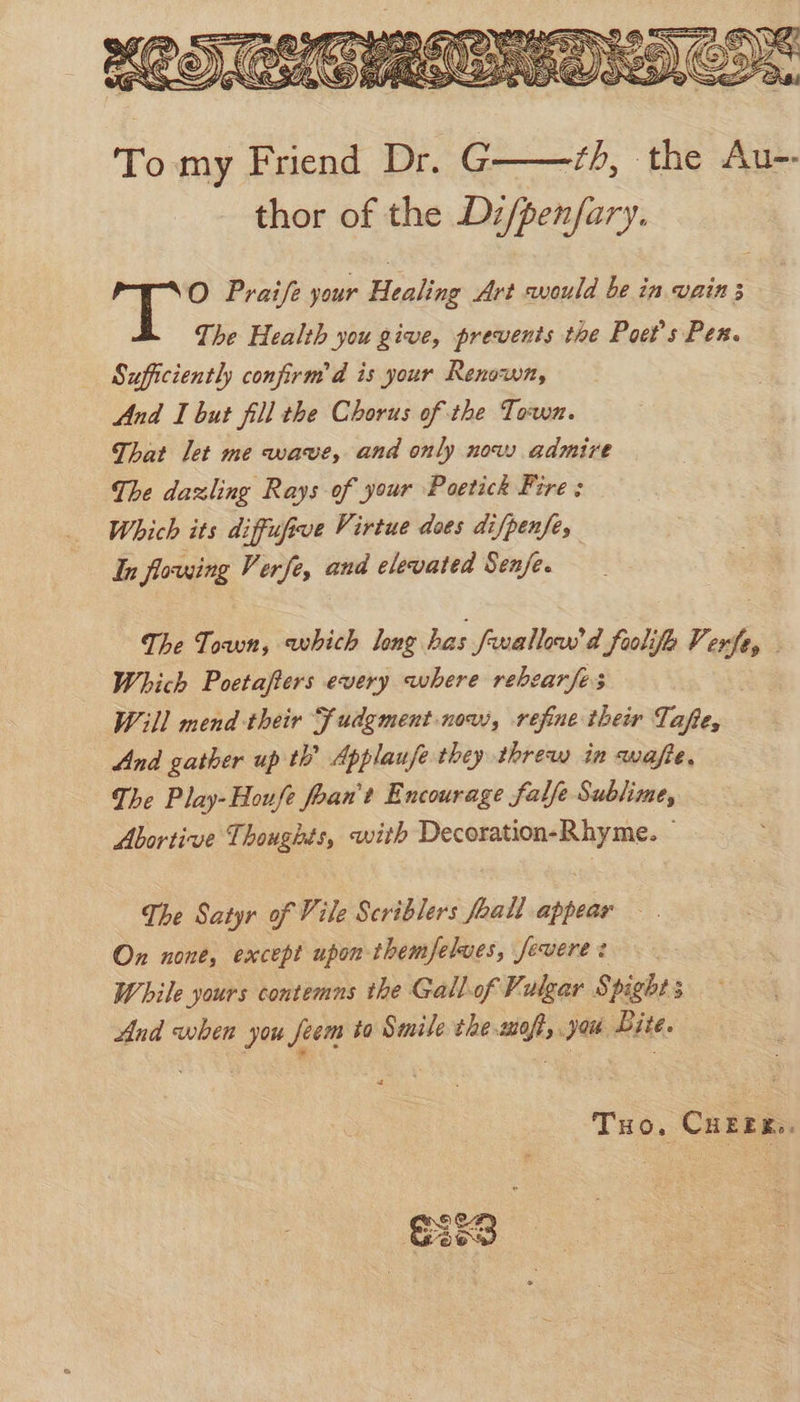 To my Friend Dr. G——th, the Au-
thor of the Diſpenſary.
TO Praiſe your Healing Art would be in vain;
The Health you give, prevents the Poet's Pen.
Sufficiently confirm'd is your Renown,
And I but fill the Chorus of the Town.
That let me wave, and only now admire
The dazling Rays of your Poetick Fire:
Which its diffuſive Virtue does diſpenſe,
In flowing Verſe, and elevated Senſe.
The Town, which long has ſwallow'd fooliſh Verſe,
Which Poetaſters every where rehearſe;
Will mend their Judgment now, refine their Taſte,
And gather up th' Applauſe they threw in waſte.
The Play-Houſe ſhan't Encourage falſe Sublime,
Abortive Thoughts, with Decoration-Rhyme.
The Satyr of Vile Scriblers ſhall appear
On none, except upon themſelves, ſevere:
While yours contemns the Gall of Vulgar Spight;
And when you ſeem to Smile the moſt, you Bite.
THO. CHEEK.